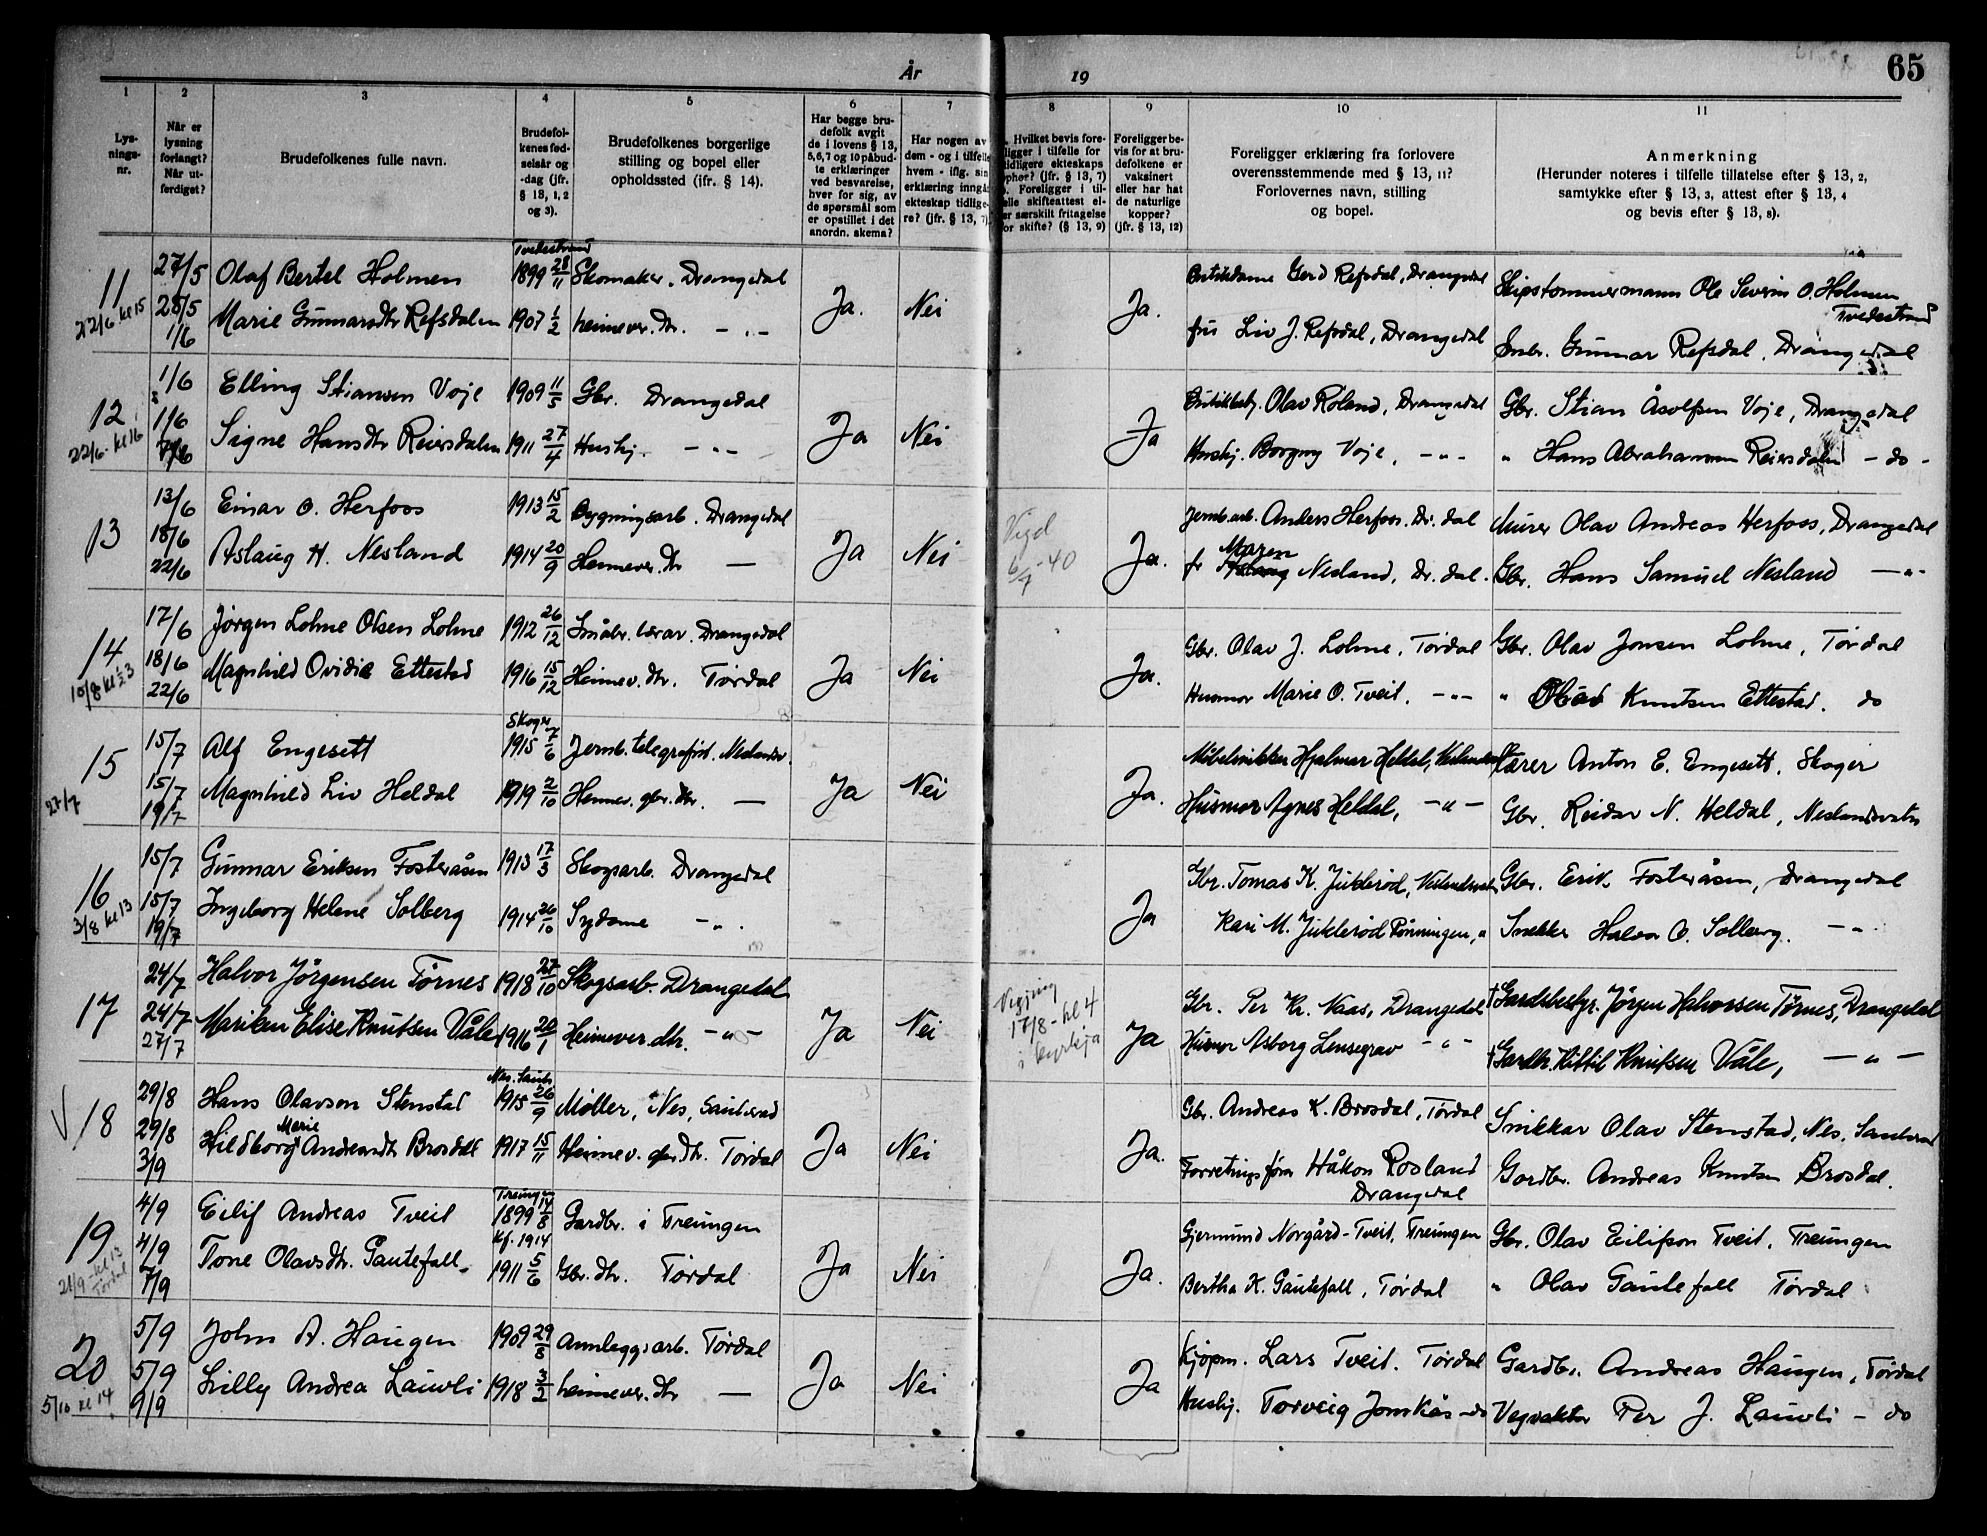 År 19
65
1 2 3 4 5 6 7 8 9 10 11
Lys-
nings-
nr.
Når er
lysning
forlangt?
Når ut-
ferdiget?
Brudefolkenes fulle navn.
Brudefol-
kenes fød-
selsår og
-dag (jfr.
§ 13, 1, 2
og 3).
Brudefolkenes borgerlige
stilling og bopel eller
opholdssted (jfr. § 14).
Har begge bru-
defolk avgit
de i lovens § 13,
5,6,7 og 10 påbud-
te erklæringer
ved besvarelse,
hver for sig, av
de spørsmål som
er opstillet i det
anordn. skema?
Har nogen av
dem - og i tilfelle
hvem - iflg. sin
erklæring inngåt
ekteskap tidlige-
re? (jfr. § 13, 7).
Hvilket bevis fore-
ligger i tilfelle for
tidligere ekteskaps
ophør? (jfr. § 13, 7)
Foreligger i til-
felle skifteattest el-
er særskilt fritagelse
or skifte? (§ 13, 9)
Foreligger be-
vis for at bru-
defolkene er
vaksinert
eller har hat
de naturlige
kopper?
(jfr. § 13, 12)
Foreligger erklæring fra forlovere
overensstemmende med § 13, 11?
Forlovernes navn, stilling
og bopel.
Anmerkning
(Herunder noteres i tilfelle tillatelse efter § 13, 2,
samtykke efter § 13, 3, attest efter § 13, 4
og bevis efter § 13, 8).
11 22/6 kl 15
27/5 28/5 1/6
Tvedestrand
Olaf Bertel Holmen 1899 28/11 Skomaker. Drangedal
Marie Gunnarsdtr Refsdalen 1907 1/2 heimever. dtr. - „ -
Ja. Nei Ja.
Butikdame Gerd Refsdal, Drangedal
fru Liv J. Refsdal, Drangedal
Skipstømmermann Ole Severin O. Holmen
Tvedestrand
Gunnar Refsdal, Drangedal
12 22/6 - kl 16
1/6 1/6
Elling Stiansen Voje 1909 11/5 Gbr. Drangedal
Signe Hansdtr Reiersdalen 1911 27/4 Hushj. - „ -
Ja Nei Ja
Olav Roland, Drangedal
Hushj. Borgny Voje, - „ -
Gbr. Stian Åsolfsen Voje, Drangedal
„ Hans Abrahamsen Reiersdalen - do -
13
13/6 18/6 22/6
Einar O. Herfoss 1913 15/2 Bygningsarb. Drangedal
Aslaug H. Nesland 1914 20/9 Heimever. dtr —
Ja Nei
Vigd
6/7 - 40
Ja.
Jernb.arb. Anders Herfoss. Dr. dal
Maren
fr Aslaug Nesland, Dr. dal.
Murer Olav Andreas Herfoss, Drangedal
Gbr. Hans Samuel Nesland — „ -
14 10/8 kl 1/2 3
17/6 18/6 22/6
Jørgen Lohne Olsen Lohne 1912 26/12 Småbr. lærar. Drangedal
Magnhild Ovidia Ettestad 1916 15/12 Heimev. dtr. Tørdal
Ja Nei Ja.
Gbr. Olav J. Lohne, Tørdal
Husmor Marie O. Tveit. - „ -
Gbr. Olav Jonsen Lohne, Tørdal
„ Olav Knutsen Ettestad. do
15 27/7
15/7 15/7 19/7
Skoger
Alf Engesett 1915 7/6 Jernb. telegrafist. Neslandsv.
Magnhild Liv Heldal 1919 2/10 Heimev. gbr. dtr. —
Ja Nei Ja.
Møbelsnikker Hjalmar Heldal,
Husmor Agnes Heldal, - „ -
Lærer Anton E. Engesett. Skoger
Gbr. Reidar N. Heldal, Neslandsvatn
16 3/8 kl 13
15/7 15/7 19/7
Gunnar Eriksen Fosteråsen 1913 17/3 Skogsarb. Drangedal
Ingeborg Helene Solberg 1914 26/10 Sydame - „ -
Ja
Gbr. Tomas K. Juklerød, Neslandsvatn
Kari M. Juklerød Rønningen, „
Gbr. Erik Fosteråsen, Drangedal
Snekker Halvor O. Solberg. - „ -
17
24/7 24/7 27/7
Halvor Jørgensen Tørnes 1918 27/10 Skogsarb. Drangedal
Mariken Elise Knutsen Våle 1916 20/1 Heimever. dtr. - „ -
Ja Nei
Vigjing
17/8 - kl 4
i kyrkja
Ja
Gbr. Per Kr. Naas, Drangedal
Husmor Asborg Lensegrav - „ -
† Gardsbestyr. Jørgen Halvorsen Tørnes, Drangedal
Gardbr. Kittil Knutsen Våle, — „ —
V 18
29/8 29/8 3/9
Nes. Sauh.
Hans Olavson Stenstad 1915 26/9 Møller, Nes, Sauherad
Marie
Hildborg Andreasdtr Brosdal 1917 15/11 Heimev. gbr. dtr. Tørdal
Ja Nei Ja.
Gbr. Andreas K. Brosdal, Tørdal
Forretningsfører Håkon Rosland
Drangedal
Snikkar Olav Stenstad, Nes, Sauherad
Gardbr. Andreas Knutsen Brosdal.
19 21/9 - kl 13
Tørdal
4/9 4/9 7/9
Treungen
Eilif Andreas Tveit 1899 14/8 Gardbr. i Treungen
Kf. 1914
Tone Olavsdtr. Gautefall 1911 5/6 Gbr. dtr. Tørdal
Ja Nei Ja.
Gjermund Norgård-Tveit, Treungen
Bertha K. Gautefall, Tørdal
Gbr. Olav Eilifson Tveit, Treungen
„ Olav Gautefall Tørdal
20 5/10 kl 14
5/9 5/9 9/9
John A. Haugen 1909 29/8 Annleggsarb. Tørdal
Lilly Andrea Lauvli 1918 3/2 heimever. dtr —
Ja Nei Ja
Kjøpm. Lars Tveit. Tørdal
Hushj. Torveig Jonskås - do
Gardbr. Andreas Haugen, Tørdal
Vegvakter Per J. Lauvli - do